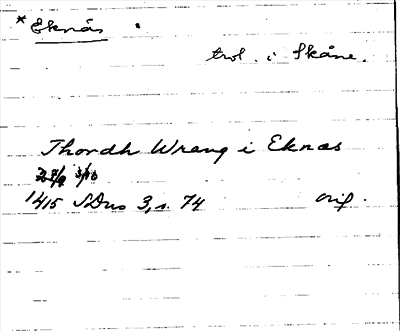 * Eknäs .
trol. i Skåne.
Thordh Wrang i Eknæs
27/9 3/10
1415 SDns 3, s. 74 orig.